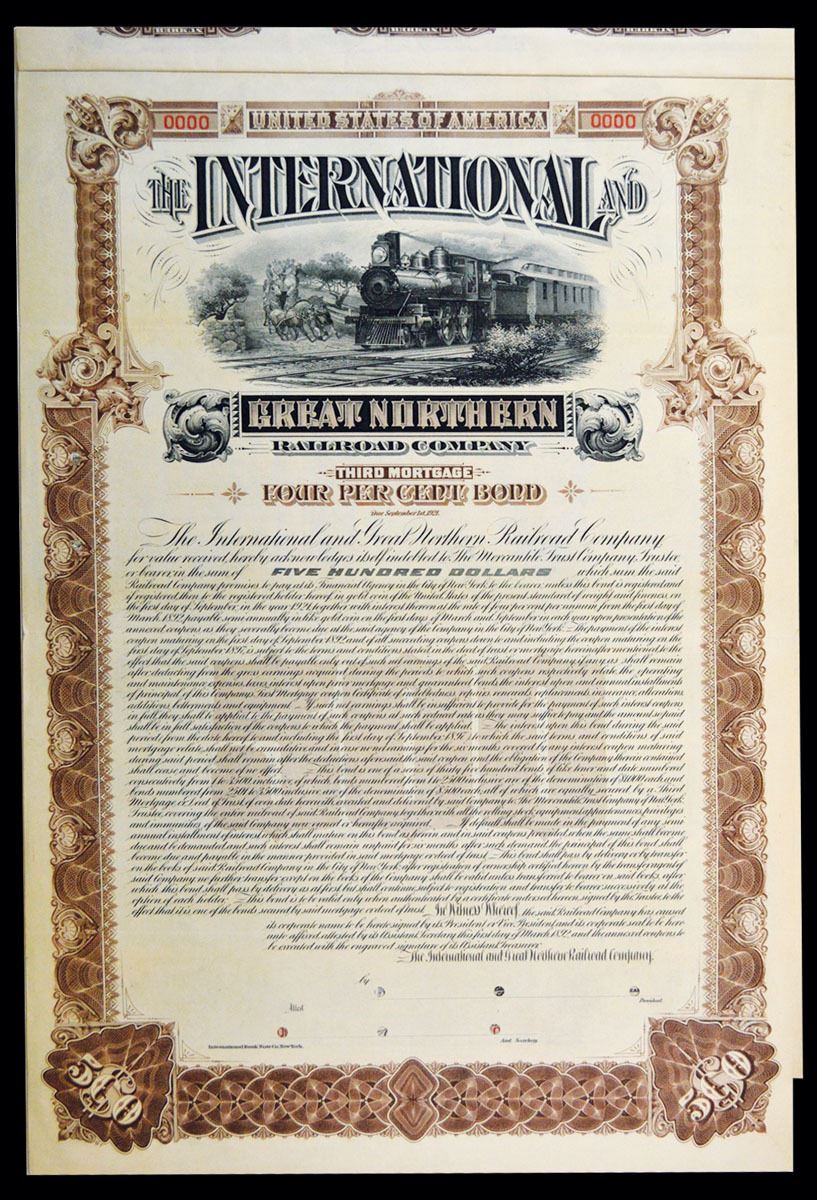 0000 UNITED STATES OF AMERICA 0000
THE INTERNATIONAL AND
GREAT NORTHERN
RAILROAD COMPANY
THIRD MORTGAGE
FOUR PER CENT. BOND
Due September 1st, 1921.
The International and Great Northern Railroad Company
for value received, hereby acknowledges itself indebted to The Mercantile Trust Company, Trustee,
or bearer, in the sum of FIVE HUNDRED DOLLARS which sum the said
Railroad Company promises to pay at its Financial Agency in the City of New York to the bearer, unless this bond is registered and
if registered, then to the registered holder hereof in gold coin of the United States of the present standard of weight and fineness, on
the first day of September, in the year 1921, together with interest thereon at the rate of four per cent per annum from the first day of
March 1892, payable semi-annually in like gold coin on the first days of March and September in each year upon presentation of the
annexed coupons as they severally become due at the said agency of the Company in the City of New York. The payment of the initial
coupon maturing on the first day of September 1892 and of all maturing coupons down to and including the coupon maturing on the
first day of September 1896, is subject to the terms and conditions stated in the deed of trust or mortgage hereinafter mentioned to the
effect that the said coupons shall be payable only out of such net earnings of the said Railroad Company if any, as shall remain
after deducting from the gross earnings acquired during the periods to which such coupons respectively relate, the operating
and maintenance expenses, taxes, interest upon prior mortgage and guaranteed bonds, the interest upon and annual installments
of principal of this Company's Trust Mortgage coupon Certificate of indebtedness, repairs, renewals, replacements, insurance, alterations,
additions, betterments and equipment. If such net earnings shall be insufficient to provide for the payment of such interest coupons
in full, they shall be applied to the payment of such coupons at such reduced rate as they may suffice to pay and the amount so paid
shall be in full satisfaction of the coupons to which the payment shall be applied. The interest upon this bond during the said
period from the date hereof to and including the first day of September 1896, to which the said terms and conditions of said
mortgage relate, shall not be cumulative and in case no net earnings for the six months covered by any interest coupon maturing
during said period shall remain after the deductions aforesaid, the said coupon and the obligation of the Company thereon at maturity
shall cease and become of no effect. This bond is one of a series of thirty five hundred bonds of like tenor and date numbered
consecutively from 1 to 3500 inclusive, of which bonds numbered from 1 to 2500 inclusive, are of the denomination of $1000 each, and
bonds numbered from 2501 to 3500 inclusive are of the denomination of $500 each, all of which are equally secured by a Third
Mortgage or Deed of Trust of even date herewith, executed and delivered by said Company to The Mercantile Trust Company of New York,
Trustee, covering the entire railroad of said Railroad Company together with all the rolling stock, equipment, appurtenances, privileges
and immunities of the said Company now owned or hereafter acquired. If default shall be made in the payment of any semi-
annual installment of interest which shall mature on this bond as herein and in said coupons provided, when the same shall become
due and be demanded, and such interest shall remain unpaid for six months after such demand, the principal of this bond shall
become due and payable in the manner provided in said mortgage or deed of trust. This bond shall pass by delivery or by transfer
on the books of said Railroad Company in the City of New York, after registration of ownership certified hereon by the transfer agent of
said Company, no further transfer except on the books of the Company shall be valid unless transferred to bearer on said books, after
which this bond shall pass by delivery as at first but shall continue subject to registration and transfer to bearer successively at the
option of each holder. This bond is to be valid only when authenticated by a certificate endorsed hereon, signed by the Trustee, to the
effect that it is one of the bonds secured by said mortgage or deed of trust. In Witness Whereof, the said Railroad Company has caused
its corporate name to be hereto signed by its President or Vice President and its corporate seal to be here-
unto affixed, attested by its Assistant Secretary this first day of March 1892, and the annexed coupons to
be executed with the engraved signature of its Assistant Treasurer.
The International and Great Northern Railroad Company,
by
President
Attest
Asst Secretary
International Bank Note Co. New York.
$500 $500